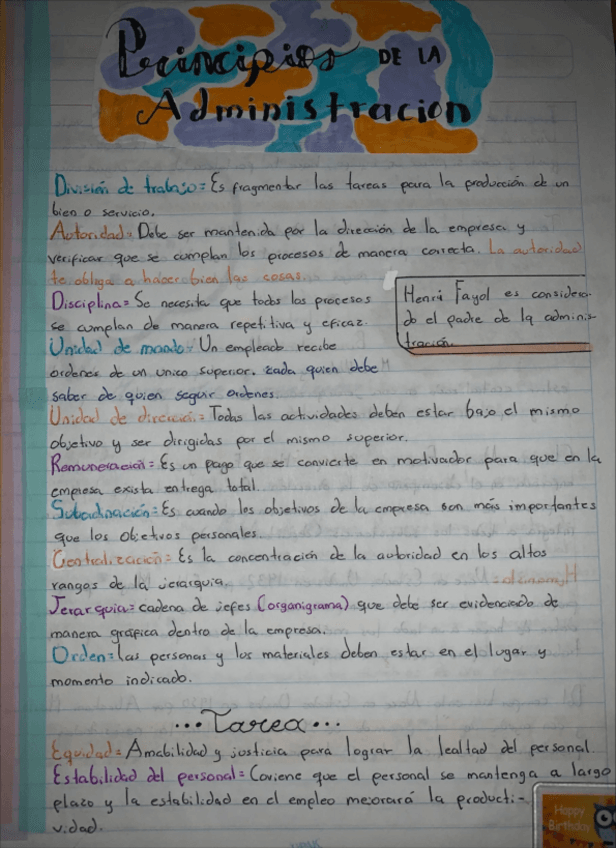 Principios DE LA
Administracion
División de trabajo = Es fragmentar las tareas para la producción de un
bien o servicio.
Autoridad = Debe ser mantenida por la dirección de la empresa y
verificar que se cumplan los procesos de manera correcta. La autoridad
te obliga a hacer bien las cosas.
Disciplina = Se necesita que todos los procesos
se cumplan de manera repetitiva y eficaz.
Henri Fayol es considera-
do el padre de la adminis-
tración.
Unidad de mando = Un empleado recibe
ordenes de un unico superior. cada quien debe
saber de quien seguir ordenes.
Unidad de dirección = Todas las actividades deben estar bajo el mismo
objetivo y ser dirigidas por el mismo superior.
Remuneración = Es un pago que se convierte en motivador para que en la
empresa exista entrega total.
Subordinación = Es cuando los objetivos de la empresa son más importantes
que los objetivos personales.
Centralización = Es la concentración de la autoridad en los altos
rangos de la jerarquia.
Jerarquia = cadena de jefes (organigrama) que debe ser evidenciado de
manera gráfica dentro de la empresa.
Orden = las personas y los materiales deben estar en el lugar y
momento indicado.
... Tarea ...
Equidad = Amabilidad y justicia para lograr la lealtad del personal
Estabilidad del personal = Coviene que el personal se mantenga a largo
plazo y la estabilidad en el empleo mejorará la producti-
vidad.
Happy
Birthday